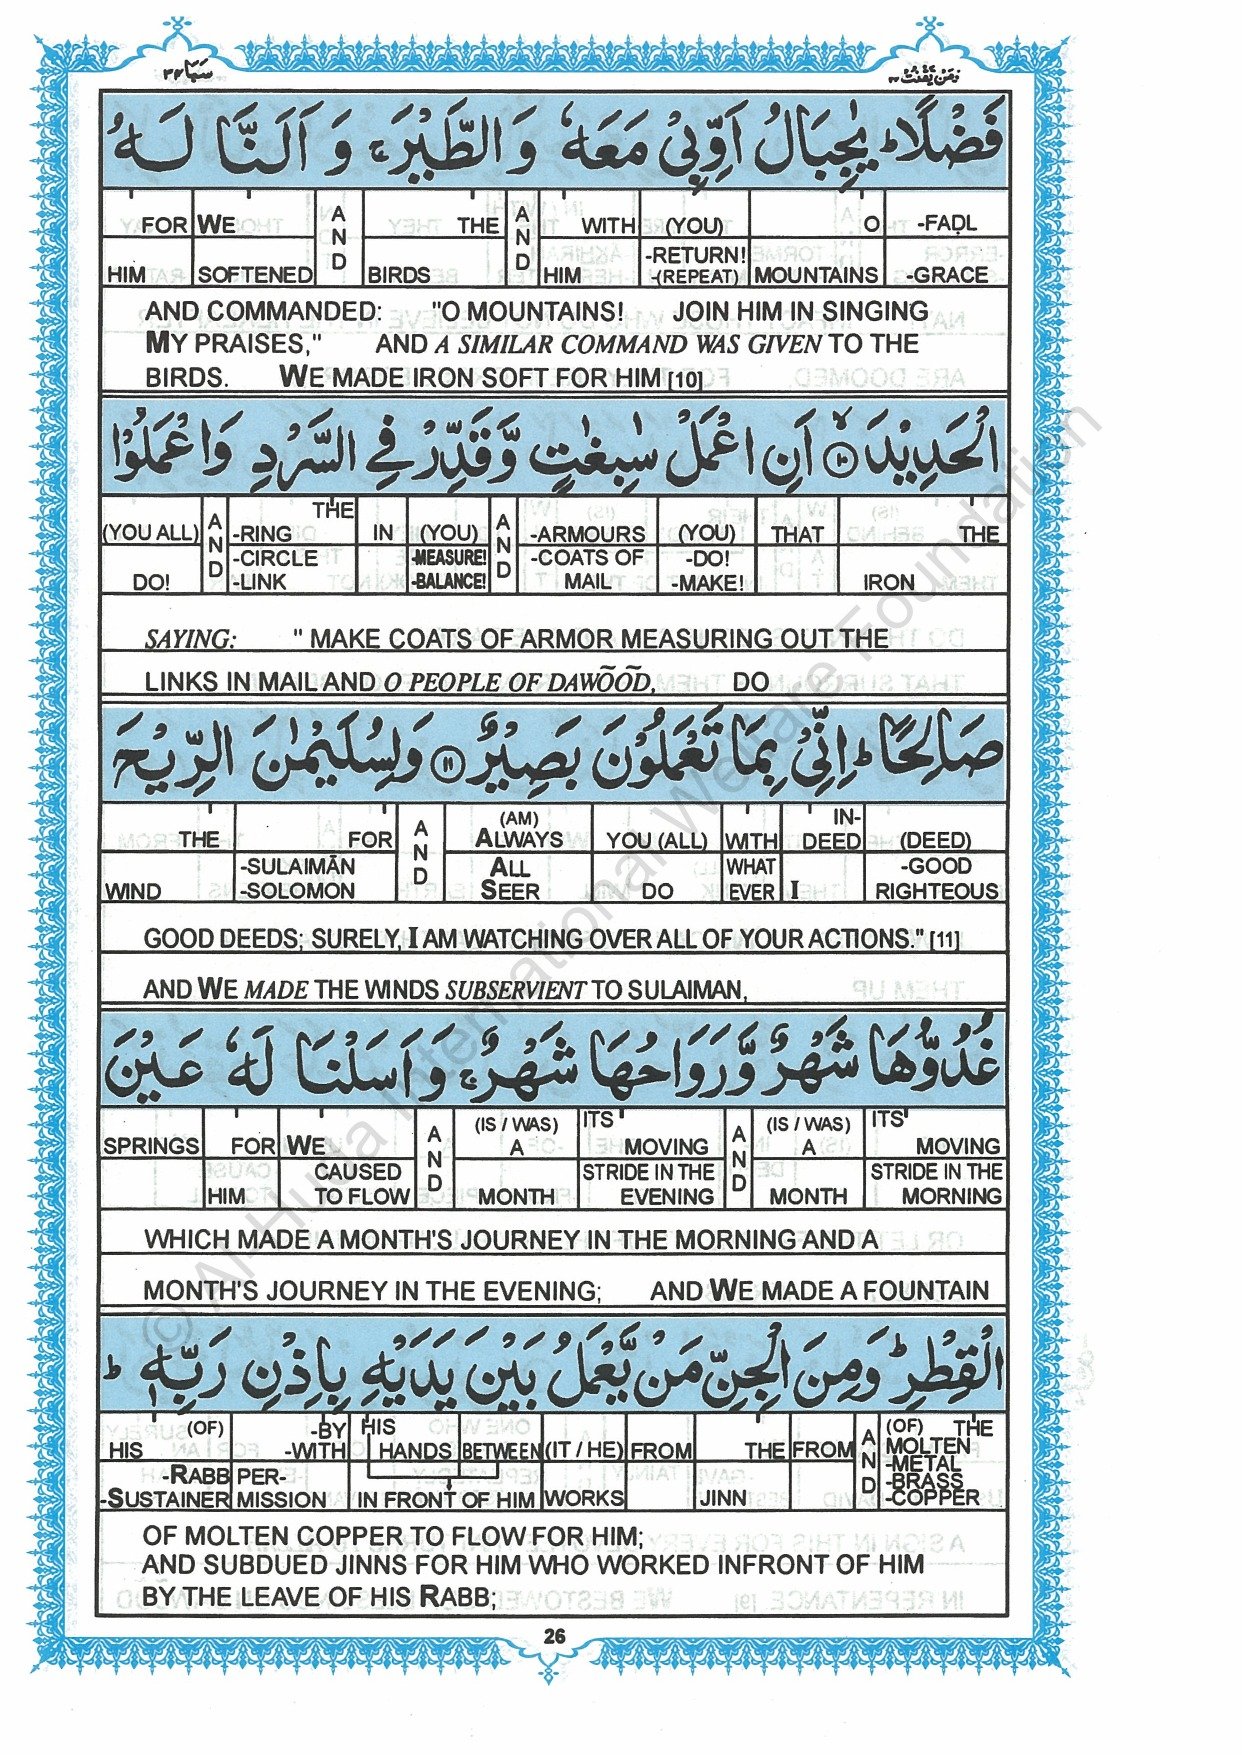 سَبَا ٣٤
وَمَنْ يَّقْنُتْ ٢٢
فَضْلًا ؕ يٰجِبَالُ اَوِّبِيْ مَعَهٗ وَالطَّيْرَ ۚ وَ اَلَنَّا لَهُ
FOR WE AND THE AND WITH (YOU) O -FAḌL
HIM SOFTENED BIRDS HIM -RETURN! -(REPEAT) MOUNTAINS -GRACE
AND COMMANDED: "O MOUNTAINS! JOIN HIM IN SINGING
MY PRAISES," AND A SIMILAR COMMAND WAS GIVEN TO THE
BIRDS. WE MADE IRON SOFT FOR HIM [10]
الْحَدِيْدَ ۙ ١٠ اَنِ اعْمَلْ سٰبِغٰتٍ وَّقَدِّرْ فِي السَّرْدِ وَاعْمَلُوْا
(YOU ALL) AND THE -RING IN (YOU) AND -ARMOURS (YOU) THAT THE
DO! -CIRCLE -LINK -MEASURE! -BALANCE! -COATS OF MAIL -DO! -MAKE! IRON
SAYING: " MAKE COATS OF ARMOR MEASURING OUT THE
LINKS IN MAIL AND O PEOPLE OF DAWÕÕD, DO
صَالِحًا ؕ اِنِّيْ بِمَا تَعْمَلُوْنَ بَصِيْرٌ ١١ وَلِسُلَيْمٰنَ الرِّيْحَ
THE FOR AND (AM) ALWAYS YOU (ALL) WITH IN-DEED (DEED)
WIND -SULAIMĀN -SOLOMON ALL SEER DO WHAT EVER I -GOOD RIGHTEOUS
GOOD DEEDS; SURELY, I AM WATCHING OVER ALL OF YOUR ACTIONS." [11]
AND WE MADE THE WINDS SUBSERVIENT TO SULAIMAN,
غُدُوُّهَا شَهْرٌ وَّرَوَاحُهَا شَهْرٌ ۚ وَ اَسَلْنَا لَهٗ عَيْنَ
SPRINGS FOR WE AND (IS / WAS) A ITS MOVING AND (IS / WAS) A ITS MOVING
HIM CAUSED TO FLOW MONTH STRIDE IN THE EVENING MONTH STRIDE IN THE MORNING
WHICH MADE A MONTH'S JOURNEY IN THE MORNING AND A
MONTH'S JOURNEY IN THE EVENING; AND WE MADE A FOUNTAIN
الْقِطْرِ ؕ وَمِنَ الْجِنِّ مَنْ يَّعْمَلُ بَيْنَ يَدَيْهِ بِاِذْنِ رَبِّهٖ ؕ
HIS (OF) -BY -WITH HIS HANDS BETWEEN (IT / HE) FROM THE FROM AND (OF) THE MOLTEN
-RABB -SUSTAINER PER-MISSION IN FRONT OF HIM WORKS JINN -METAL -BRASS -COPPER
OF MOLTEN COPPER TO FLOW FOR HIM;
AND SUBDUED JINNS FOR HIM WHO WORKED INFRONT OF HIM
BY THE LEAVE OF HIS RABB;
26
© Al-Huda International Welfare Foundation